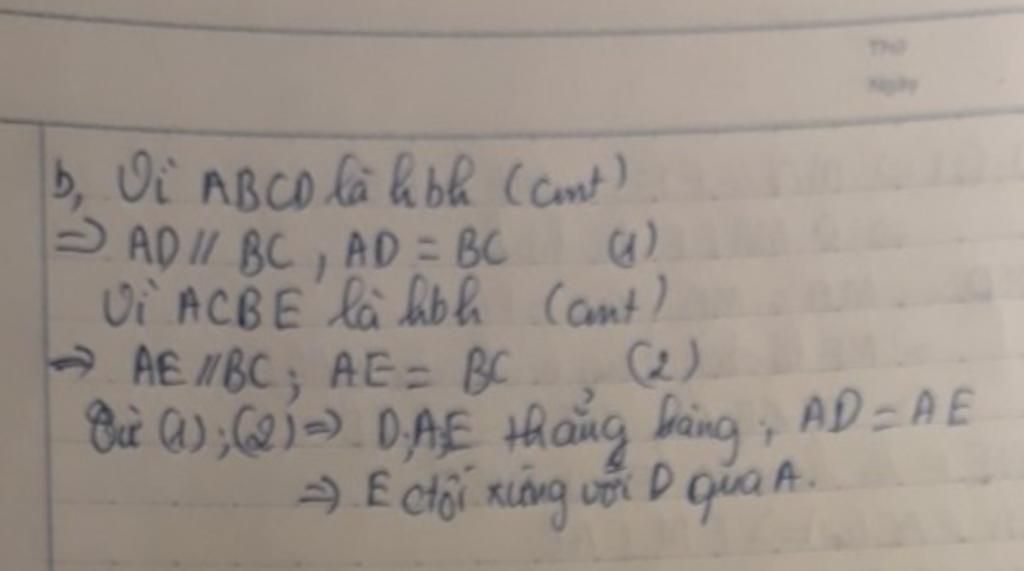 Thứ
Ngày
b, Vì ABCD là hbh (cmt)
=> AD // BC , AD = BC (1)
Vì ACBE là hbh (cmt)
=> AE // BC ; AE = BC (2)
Từ (1) ; (2) => D,A,E thẳng hàng , AD = AE
=> E đối xứng với D qua A.